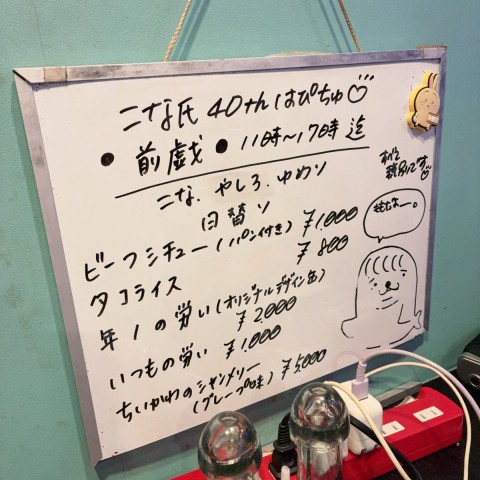 こな氏 40th はぴちゅ♡
• 前戯 • 11時〜17時 迄
こな、やしろ、ゆめソ
日替ソ
ビーフシチュー(パン付き) ¥1,000
タコライス ¥800
年1の労い(オリジナルデザイン缶) ¥2,000
いつもの労い ¥1,000
ちいかわのシャンメリー(グレープ味) ¥5,000
すべて
税別です♡